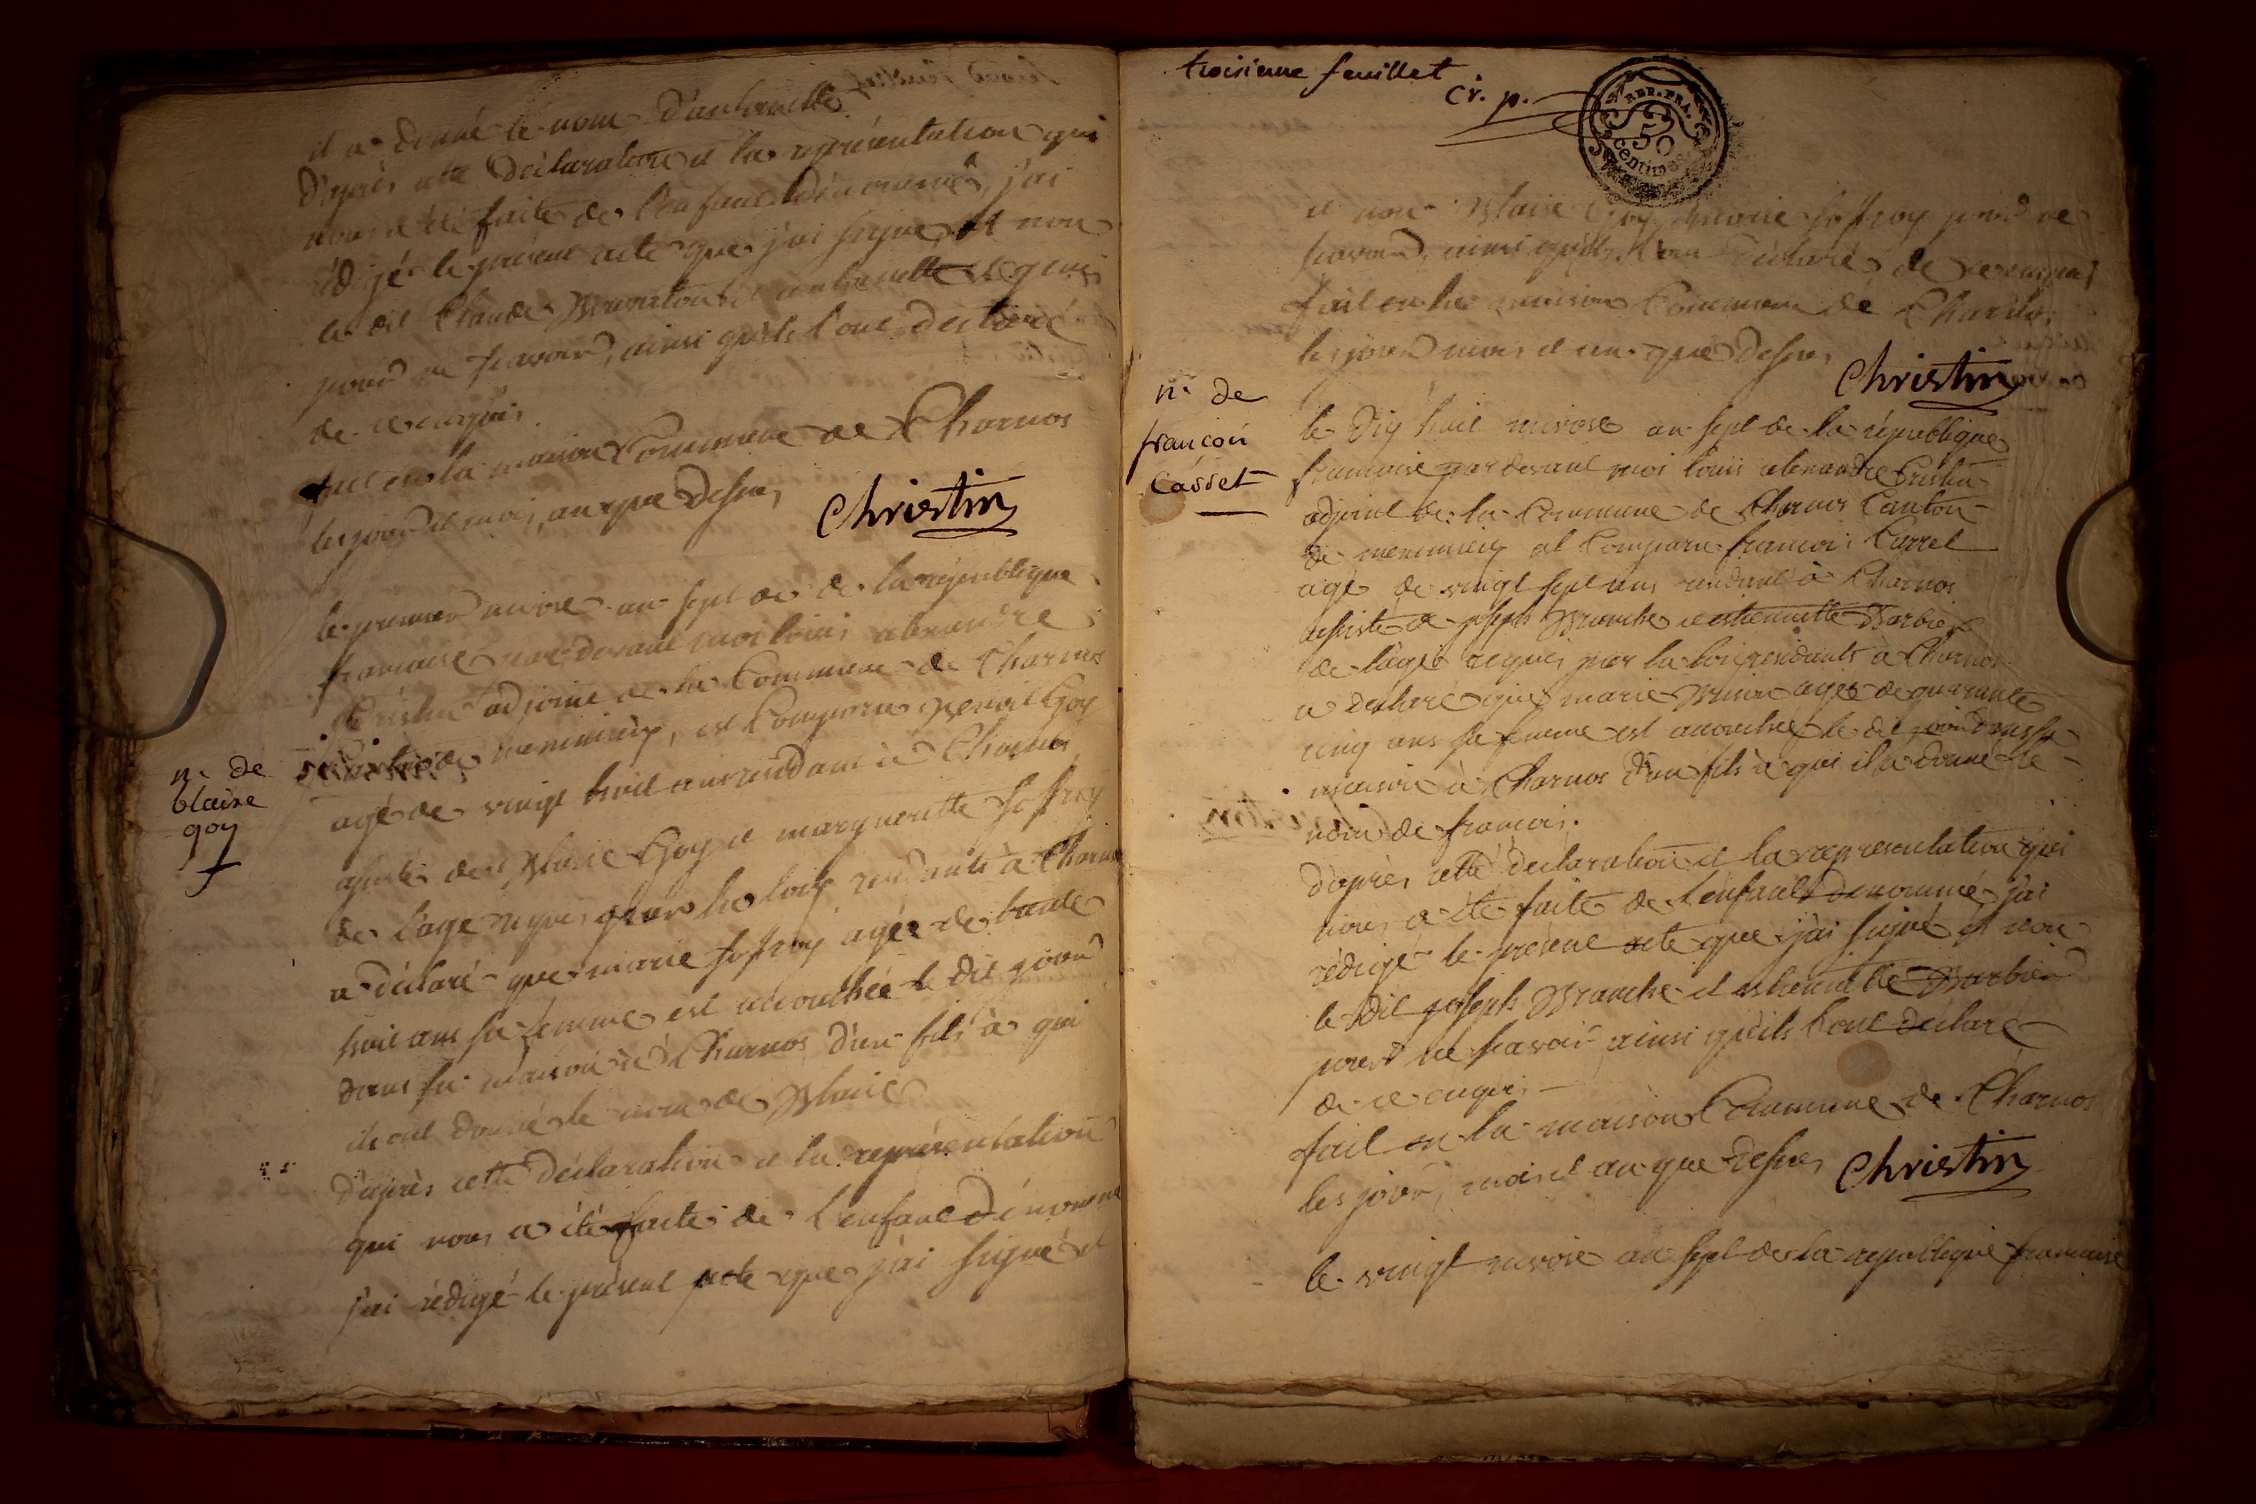 il a donné le nom d'anthoinette
D'après cette Déclaration et la représentation qui
nous a été faite de l'enfant dénommé, j'ai
rédigé le présent acte que j'ai signé et non
le dit Claude
pour ne savoir, ainsi qu'ils l'ont déclaré
de ce enquis
fait en la maison Commune de Charnos
les jour et mois, an que dessus
Christin
le premier nivose an sept de de la république
francaise par devant moi louis alexandre
Cristin adjoint de la Commune de Charnos
de meximieux, est Comparu benoit Goy
n. de
blaise
goy
agé de vingt huit ans residant à Charnos
de blaise Goy et margueritte joffray
de l'age requis par la loix residants à Charnos
a déclaré que marie joffray agée de trente
huit ans sa femme est accouchée le dit jour
dans sa maison à Charnos d'un fils à qui
ils ont donné le nom de blaise
D'après cette déclaration et la représentation
qui nous a été faite de l'enfant Dénommé
j'ai rédigé le présent acte que j'ai signé et
troisieme feuillet
cr. p.
REP. FRA.
50
centimes
et non blaise Goy joffray pour ne
savoir, ainsi qu'ils l'ont déclaré de ce enquis
fait en la maison Commune de Charnos
les jour mois et an que dessus
Christin
n. de
francoii
Casset
le dix huit nivose an sept de la république
francaise par devant moi louis alexandre Cristin
adjoint de la Commune de Charnos Canton
de meximieux est Comparu francois
agé de vingt sept ans residant à Charnos
assisté de joseph branche et anthoinette barbier
de l'age requis par la loi residants à Charnos
a déclaré que marie agée de quarante
cinq ans sa femme est accouchée le dit jour dans sa
maison à Charnos d'un fils à qui il a donné le
nom de francois.
D'après cette déclaration et la representation qui
nous a été faite de l'enfant dénommé, j'ai
rédigé le présent acte que j'ai signé et non
le dit joseph branche et anthoinette barbier
pour ne savoir ainsi qu'ils l'ont déclaré
de ce enquis
fait en la maison Commune de Charnos
les jour, mois et an que dessus
Christin
le vingt nivose an sept de la republique francaise